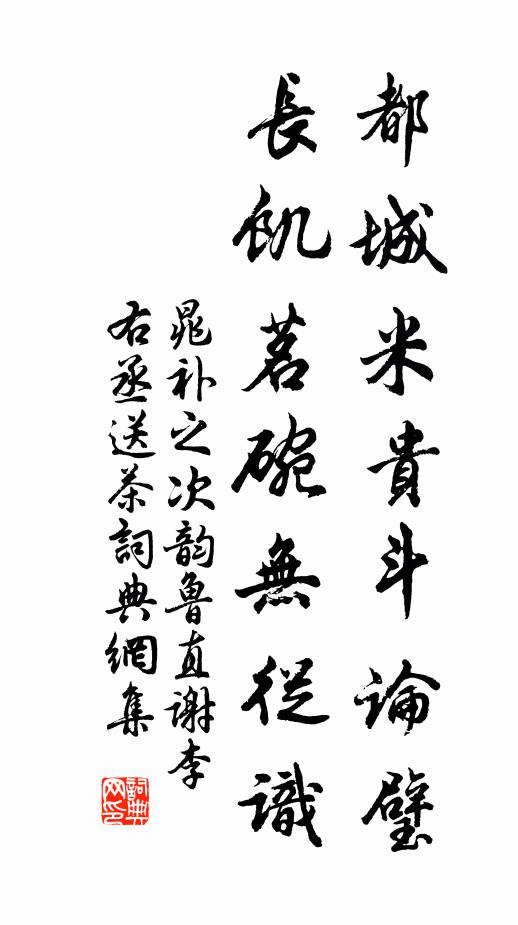 都城米貴斗論璧
長飢茗碗無從識
晁補之次韵魯直謝李
右丞送茶詞典網集
詞典网印